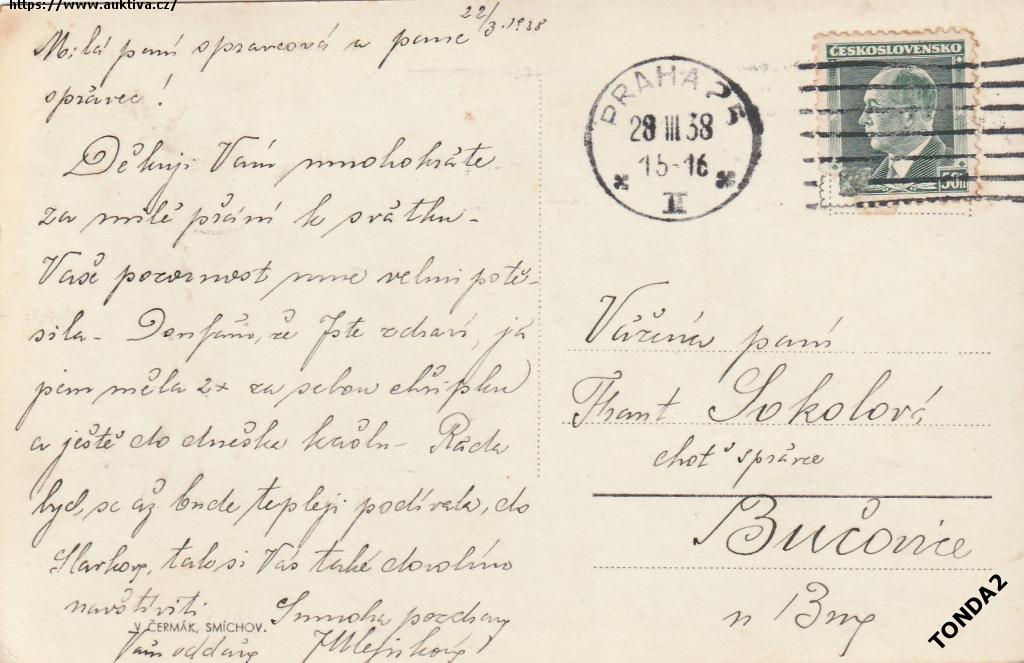 https://www.auktiva.cz/
22/3. 1938
Milá paní správcová a pane
správce!
Děkuji Vám mnohokráte
za milé přání k svátku -
Vaše pozornost mne velmi potě-
šila - Doufám, že Jste zdraví, já
jsem měla 2x za sebou chřipku
a ještě do dneška kašlu - Ráda
bych, se až bude tepleji podívala, do
Slavkova, tak si Vás také dovolím
navštíviti
S mnoha pozdravy
V. ČERMÁK, SMÍCHOV.
Vám oddaná
PRAHA 25
28 III 38
15-16
II
ČESKOSLOVENSKO
50h
Vážená paní
Frant Sokolová
choť správce
Bučovice
u Brna
TONDA2